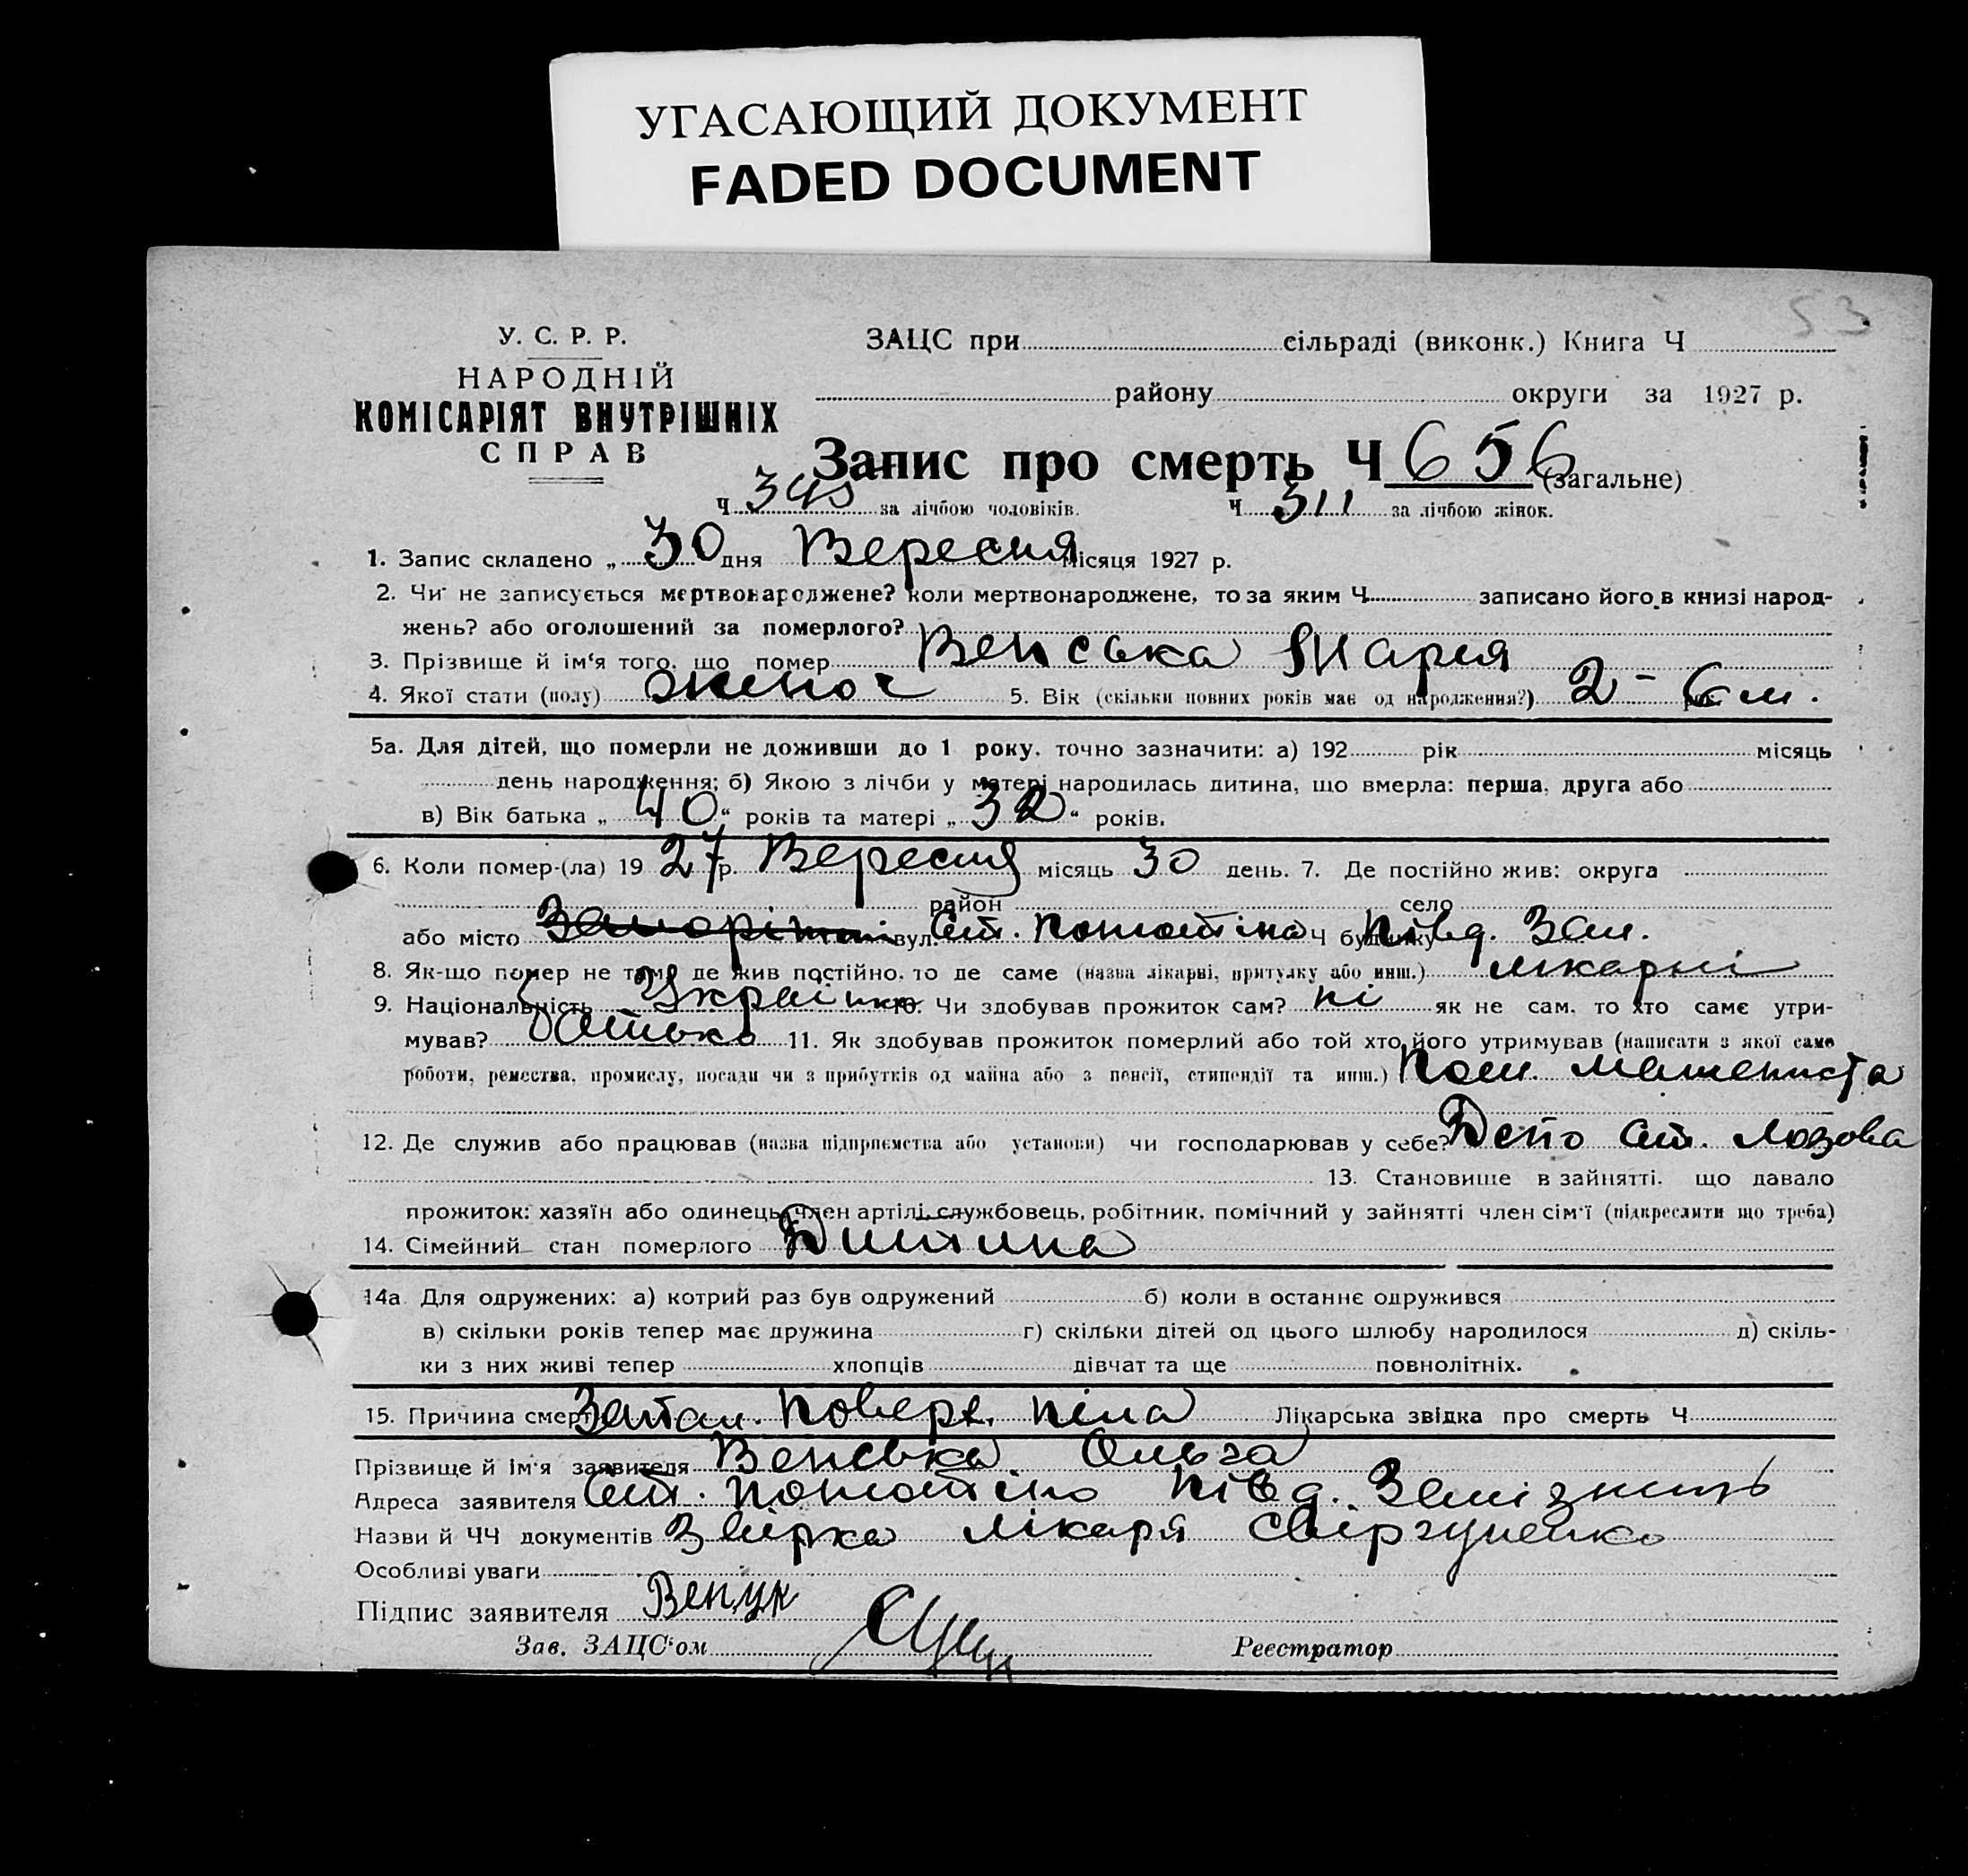 УГАСАЮЩИЙ ДОКУМЕНТ
FADED DOCUMENT
53
У. С. Р. Р.
НАРОДНІЙ
КОМІСАРІЯТ ВНУТРІШНІХ
СПРАВ
ЗАЦС при сільраді (виконк.) Книга Ч
району округи за 1927 р.
Запис про смерть Ч 656 (загальне)
Ч 345 за лічбою чоловіків. Ч 311 за лічбою жінок.
1. Запис складено „ 30 дня Вересня місяця 1927 р.
2. Чи не записується мертвонароджене? коли мертвонароджене, то за яким Ч записано його в книзі народ-
жень? або оголошений за померлого?
3. Прізвище й ім‘я того, що помер Венська Марія
4. Якої стати (полу) жіноч 5. Вік (скільки повних років має од народження?) 2 - 6 м.
5а. Для дітей, що померли не доживши до 1 року, точно зазначити: а) 192 рік місяць
день народження; б) Якою з лічби у матері народилась дитина, що вмерла: перша, друга або
в) Вік батька „ 40 “ років та матері „ 32 “ років.
6. Коли помер-(ла) 19 27 р. Вересня місяць 30 день. 7. Де постійно жив: округа
район село
або місто вул. Ст. Помошіна Ч будинку Півд. Зал.
8. Як-що помер не там, де жив постійно, то де саме (назва лікарні, притулку або инш.) лікарні
9. Національність Українка 10. Чи здобував прожиток сам? ні як не сам, то хто саме утри-
мував? батько 11. Як здобував прожиток померлий або той хто його утримував (написати з якої саме
роботи, ремества, промислу, посади чи з прибутків од майна або з пенсії, стипендії та инш.) Пом. машениста
12. Де служив або працював (назва підприємства або установи) чи господарював у себе? Депо ст. Лозова
13. Становище в зайнятті, що давало
прожиток: хазяїн або одинець, член артілі, службовець, робітник, помічний у зайнятті член сім‘ї (підкреслити що треба)
14. Сімейний стан померлого Дитина
14а Для одружених: а) котрий раз був одружений б) коли в останнє одружився
в) скільки років тепер має дружина г) скільки дітей од цього шлюбу народилося д) скіль-
ки з них живі тепер хлопців дівчат та ще повнолітніх.
15. Причина смерти Запал. Лікарська звідка про смерть Ч
Прізвище й ім‘я заявителя Венська Ольга
Адреса заявителя Ст. Помошіна Півд. Залізниць
Назви й ЧЧ документів лікаря
Особливі уваги
Підпис заявителя
Зав. ЗАЦС‘ом Реєстратор